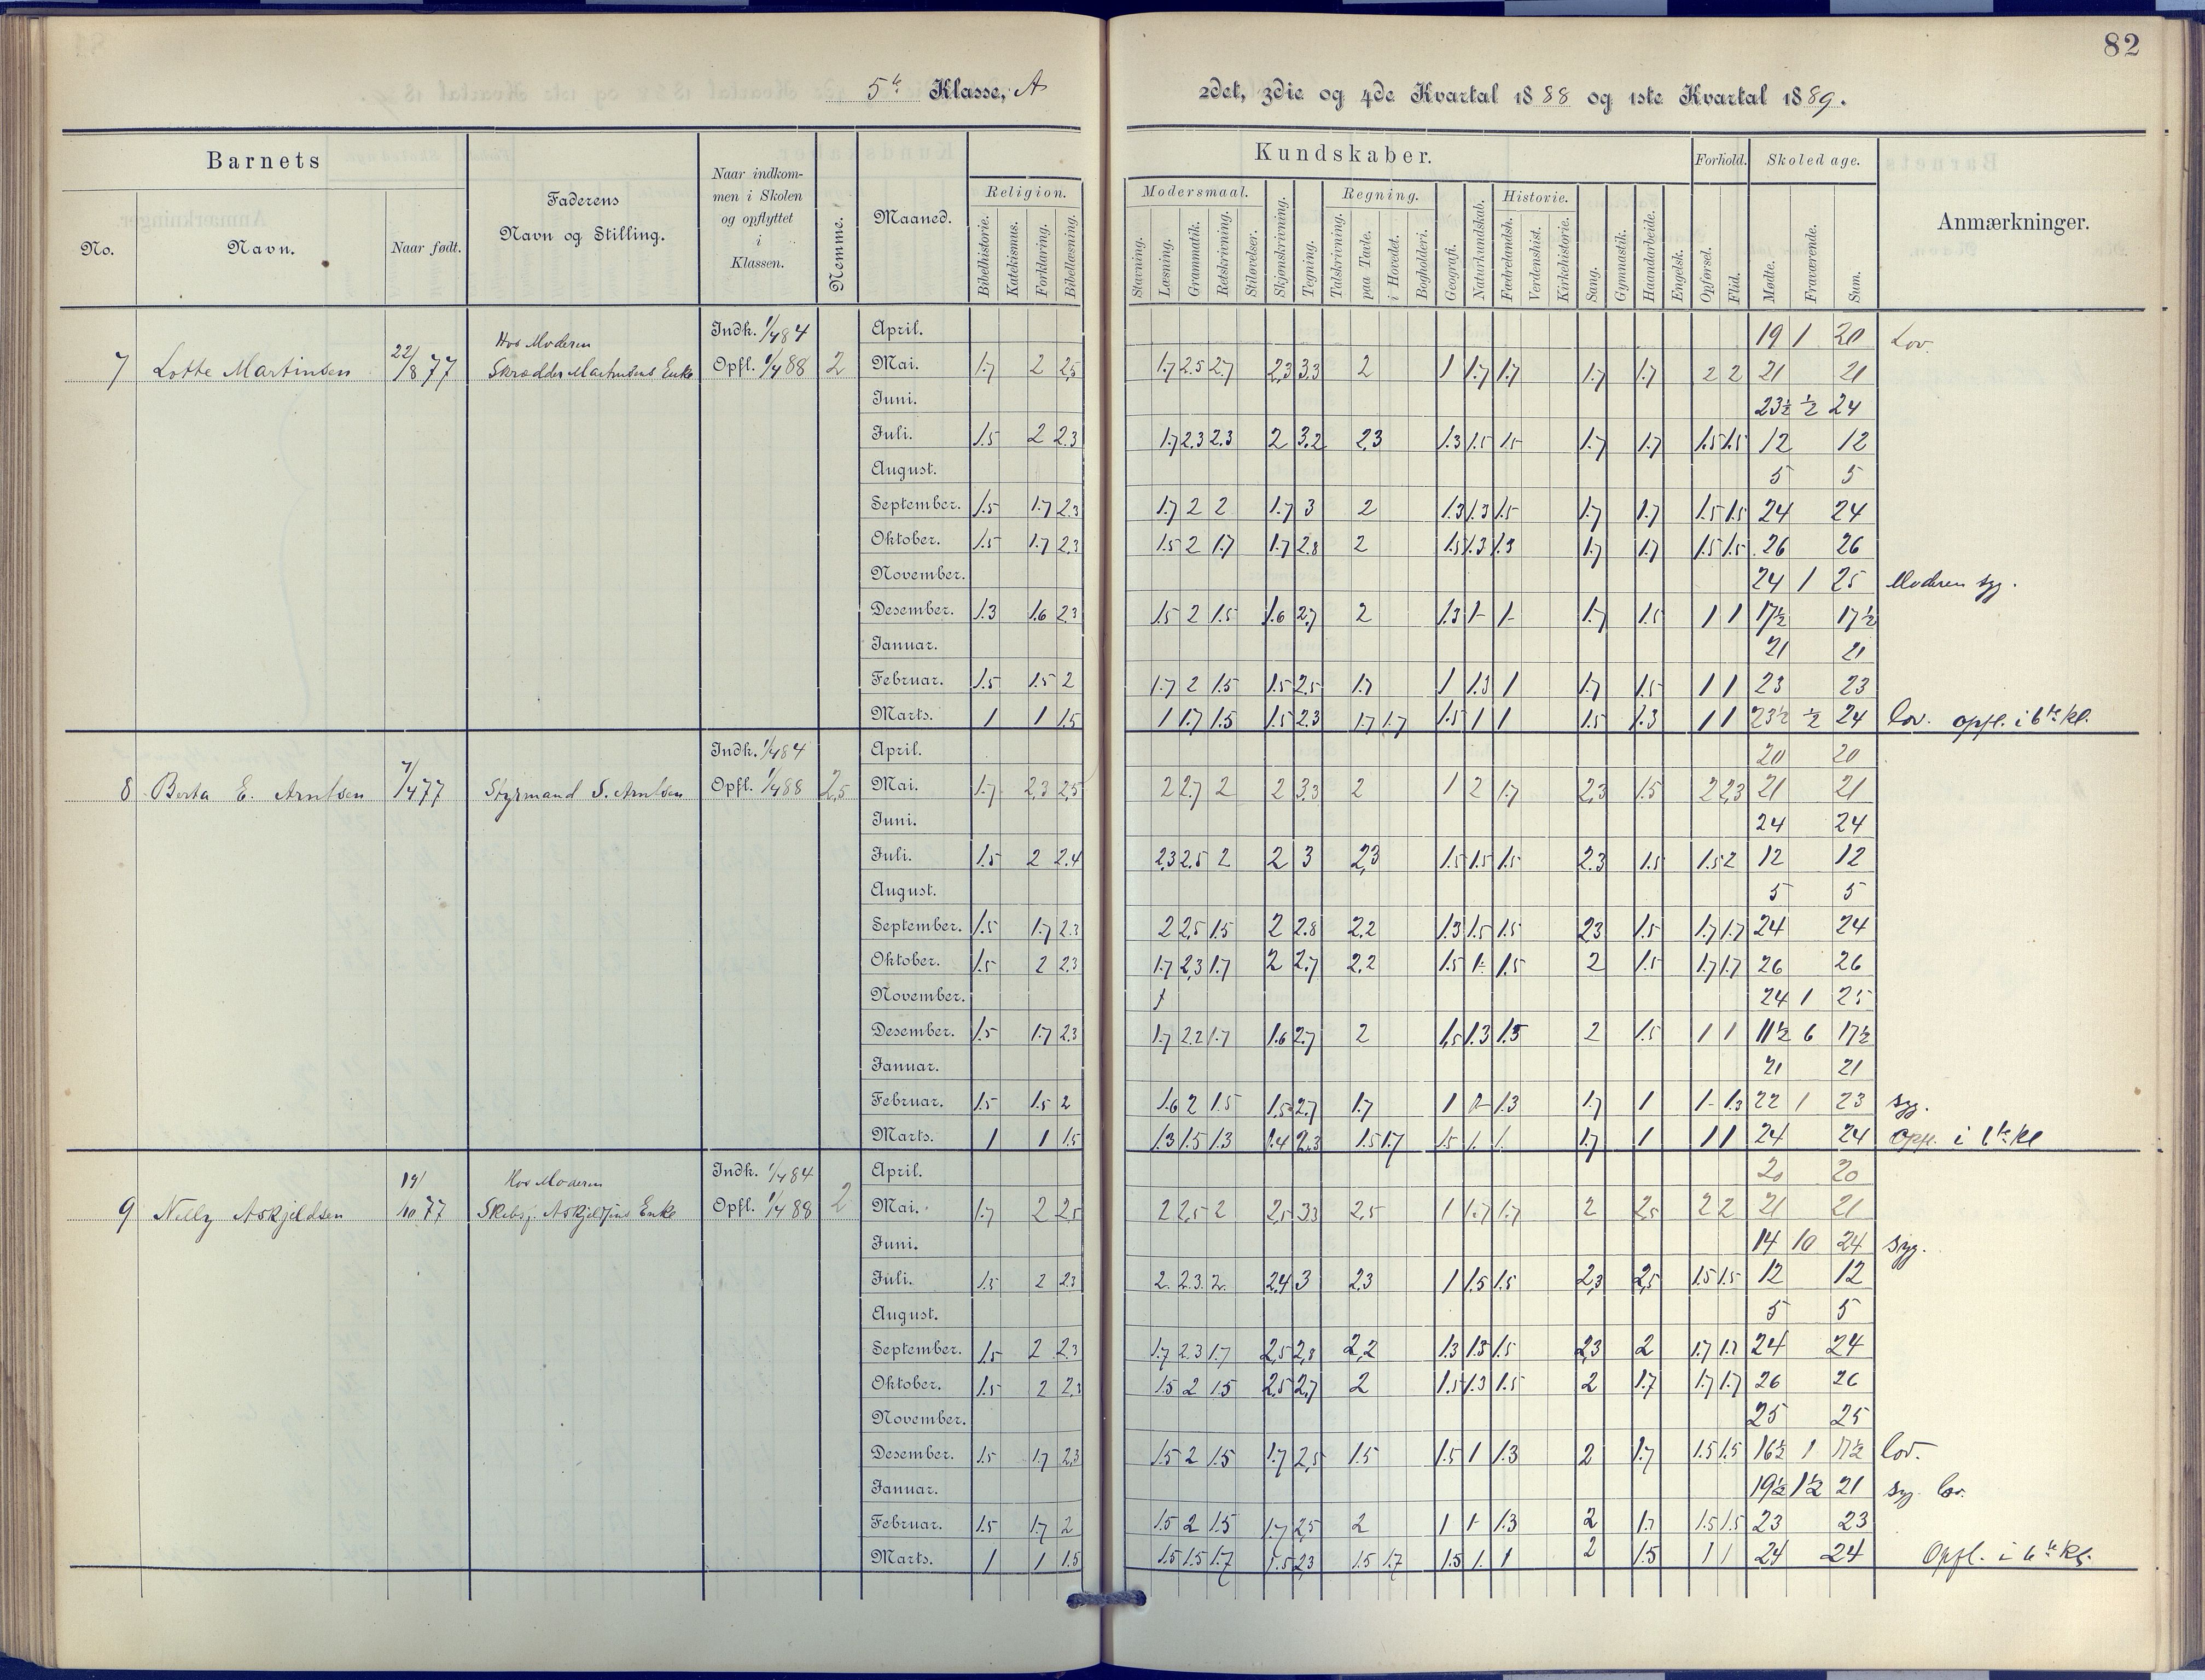 82
5te Klasse, A
2det, 3die og 4de Kvartal 1888 og 1ste Kvartal 1889.
Barnets
No.
Navn.
Naar født.
Faderens
Navn og Stilling.
Naar indkom-
men i Skolen
og opflyttet
i
Klassen.
Nemme.
Maaned.
Kundskaber.
Religion.
Bibelhistorie.
Katekismus.
Forklaring.
Bibellæsning.
Modersmaal.
Stavning.
Læsning.
Grammatik.
Retskrivning.
Stiløvelser.
Skjønskrivning.
Tegning.
Regning.
Talskrivning.
paa Tavle.
i Hovedet.
Bogholderi.
Geografi.
Naturkundskab.
Historie.
Fædrelandsh.
Verdenshist.
Kirkehistorie.
Sang.
Gymnastik.
Haandarbeide.
Engelsk.
Forhold.
Opførsel.
Flid.
Skoledage.
Mødte.
Fraværende.
Sum.
Anmærkninger.
7 Lotte Martinsen 22/8 77 Hos Moderen Skrædder Martinsens Enke Indk. 1/4 84 Opfl. 1/4 88 2
April. 19 1 20 Lov.
Mai. 1.7 2 2,5 1.7 2.5 2.7 2,3 3.3 2 1 1.7 1.7 1.7 1.7 2 2 21 21
Juni. 23½ ½ 24
Juli. 1.5 2 2.3 1.7 2.3 2.3 2 3.2 2.3 1.3 1.5 1.5 1.7 1.7 1.5 1.5 12 12
August. 5 5
September. 1.5 1.7 2.3 1.7 2 2 1.7 3 2 1.3 1.3 1.5 1.7 1.7 1.5 1.5 24 24
Oktober. 1.5 1.7 2.3 1.5 2 1.7 1.7 2.8 2 1.5 1.3 1.3 1.7 1.7 1.5 1.5 26 26
November. 24 1 25 Moderen syg.
Desember. 1.3 1.6 2.3 1.5 2 1.5 1.6 2.7 2 1.3 1- 1- 1.7 1.5 1 1 17½ 17½
Januar. 21 21
Februar. 1.5 1.5 2 1.7 2 1.5 1.5 2.5 1.7 1 1.3 1 1.7 1.5 1 1 23 23
Marts. 1 1 1.5 1 1.7 1.5 1.5 2.3 1.7 1.7 1.5 1 1 1.5 1.3 1 1 23½ ½ 24 lov. opfl. i 6te kl.
8 Berta E. Arntsen 7/4 77 Styrmand S. Arntsen Indk. 1/4 84 Opfl. 1/4 88 2,5
April. 20 20
Mai. 1.7 2,3 2,5 2 2.7 2 2 3.3 2 1 2 1.7 2,3 1.5 2 2,3 21 21
Juni. 24 24
Juli. 1.5 2 2.4 2.3 2.5 2 2 3 2,3 1.5 1.5 1.5 2.3 1.5 1.5 2 12 12
August. 5 5
September. 1.5 1.7 2.3 2 2,5 1.5 2 2.8 2.2 1.3 1.5 1.5 23 1.5 1.7 1.7 24 24
Oktober. 1.5 2 2.3 1.7 2,3 1.7 2 2.7 2.2 1.5 1- 1.5 2 1.5 1.7 1.7 26 26
November. 24 1 25
Desember. 1.5 1.7 2.3 1.7 2.2 1.7 1.6 2.7 2 1,5 1.3 1.3 2 1.5 1 1 11½ 6 17½
Januar. 21 21
Februar. 1.5 1.5 2 1.6 2 1.5 1.5 2.7 1.7 1 1- 1.3 1.7 1 1- 1.3 22 1 23 syg.
Marts. 1 1 1.5 1.3 1.5 1.3 1.4 2.3 1.5 1.7 1.5 1. 1. 1.7 1 1 1 24 24 opfl. i 6te kl
9 Nelly Askjeldsen 19/10 77 Hos Moderen Skibsf. Askjeldsens Enke Indk. 1/4 84 Opfl. 1/4 88 2
April. 20 20
Mai. 1.7 2 2.5 2 2,5 2 2,5 3.3 2,5 1 1.7 1.7 2 2,5 2 2 21 21
Juni. 14 10 24 syg.
Juli. 1.5 2 2.3 2. 2.3 2. 2.4 3 2.3 1 1.5 1.5 2,3 2,5 1.5 1.5 12 12
August. 5 5
September. 1.5 2 2.3 1.7 2.3 1.7 2,5 2,8 2,2 1.3 1.3 1.5 2,3 2 1.7 1.7 24 24
Oktober. 1.5 2 2.3 1.5 2 1.5 2,5 2,7 2 1.5 1.3 1.5 2 1.7 1.7 1.7 26 26
November. 25 25
Desember. 1.5 1.7 2.3 1.5 2 1.5 1.7 2,5 1.5 1.5 1 1.3 2 1.7 1.5 1.5 16½ 1 17½ lov.
Januar. 19½ 1½ 21 syg. lov.
Februar. 1.5 1.7 2 1.5 2 1.5 1.7 2,5 2 1 1- 1.3 2 1.7 1.5 1.5 23 23
Marts. 1 1 1.5 1.5 1.5 1.7 1.5 2,3 1.5 1.7 1.5 1. 1 2 1.5 1 1 24 24 Opfl. i 6te kl.